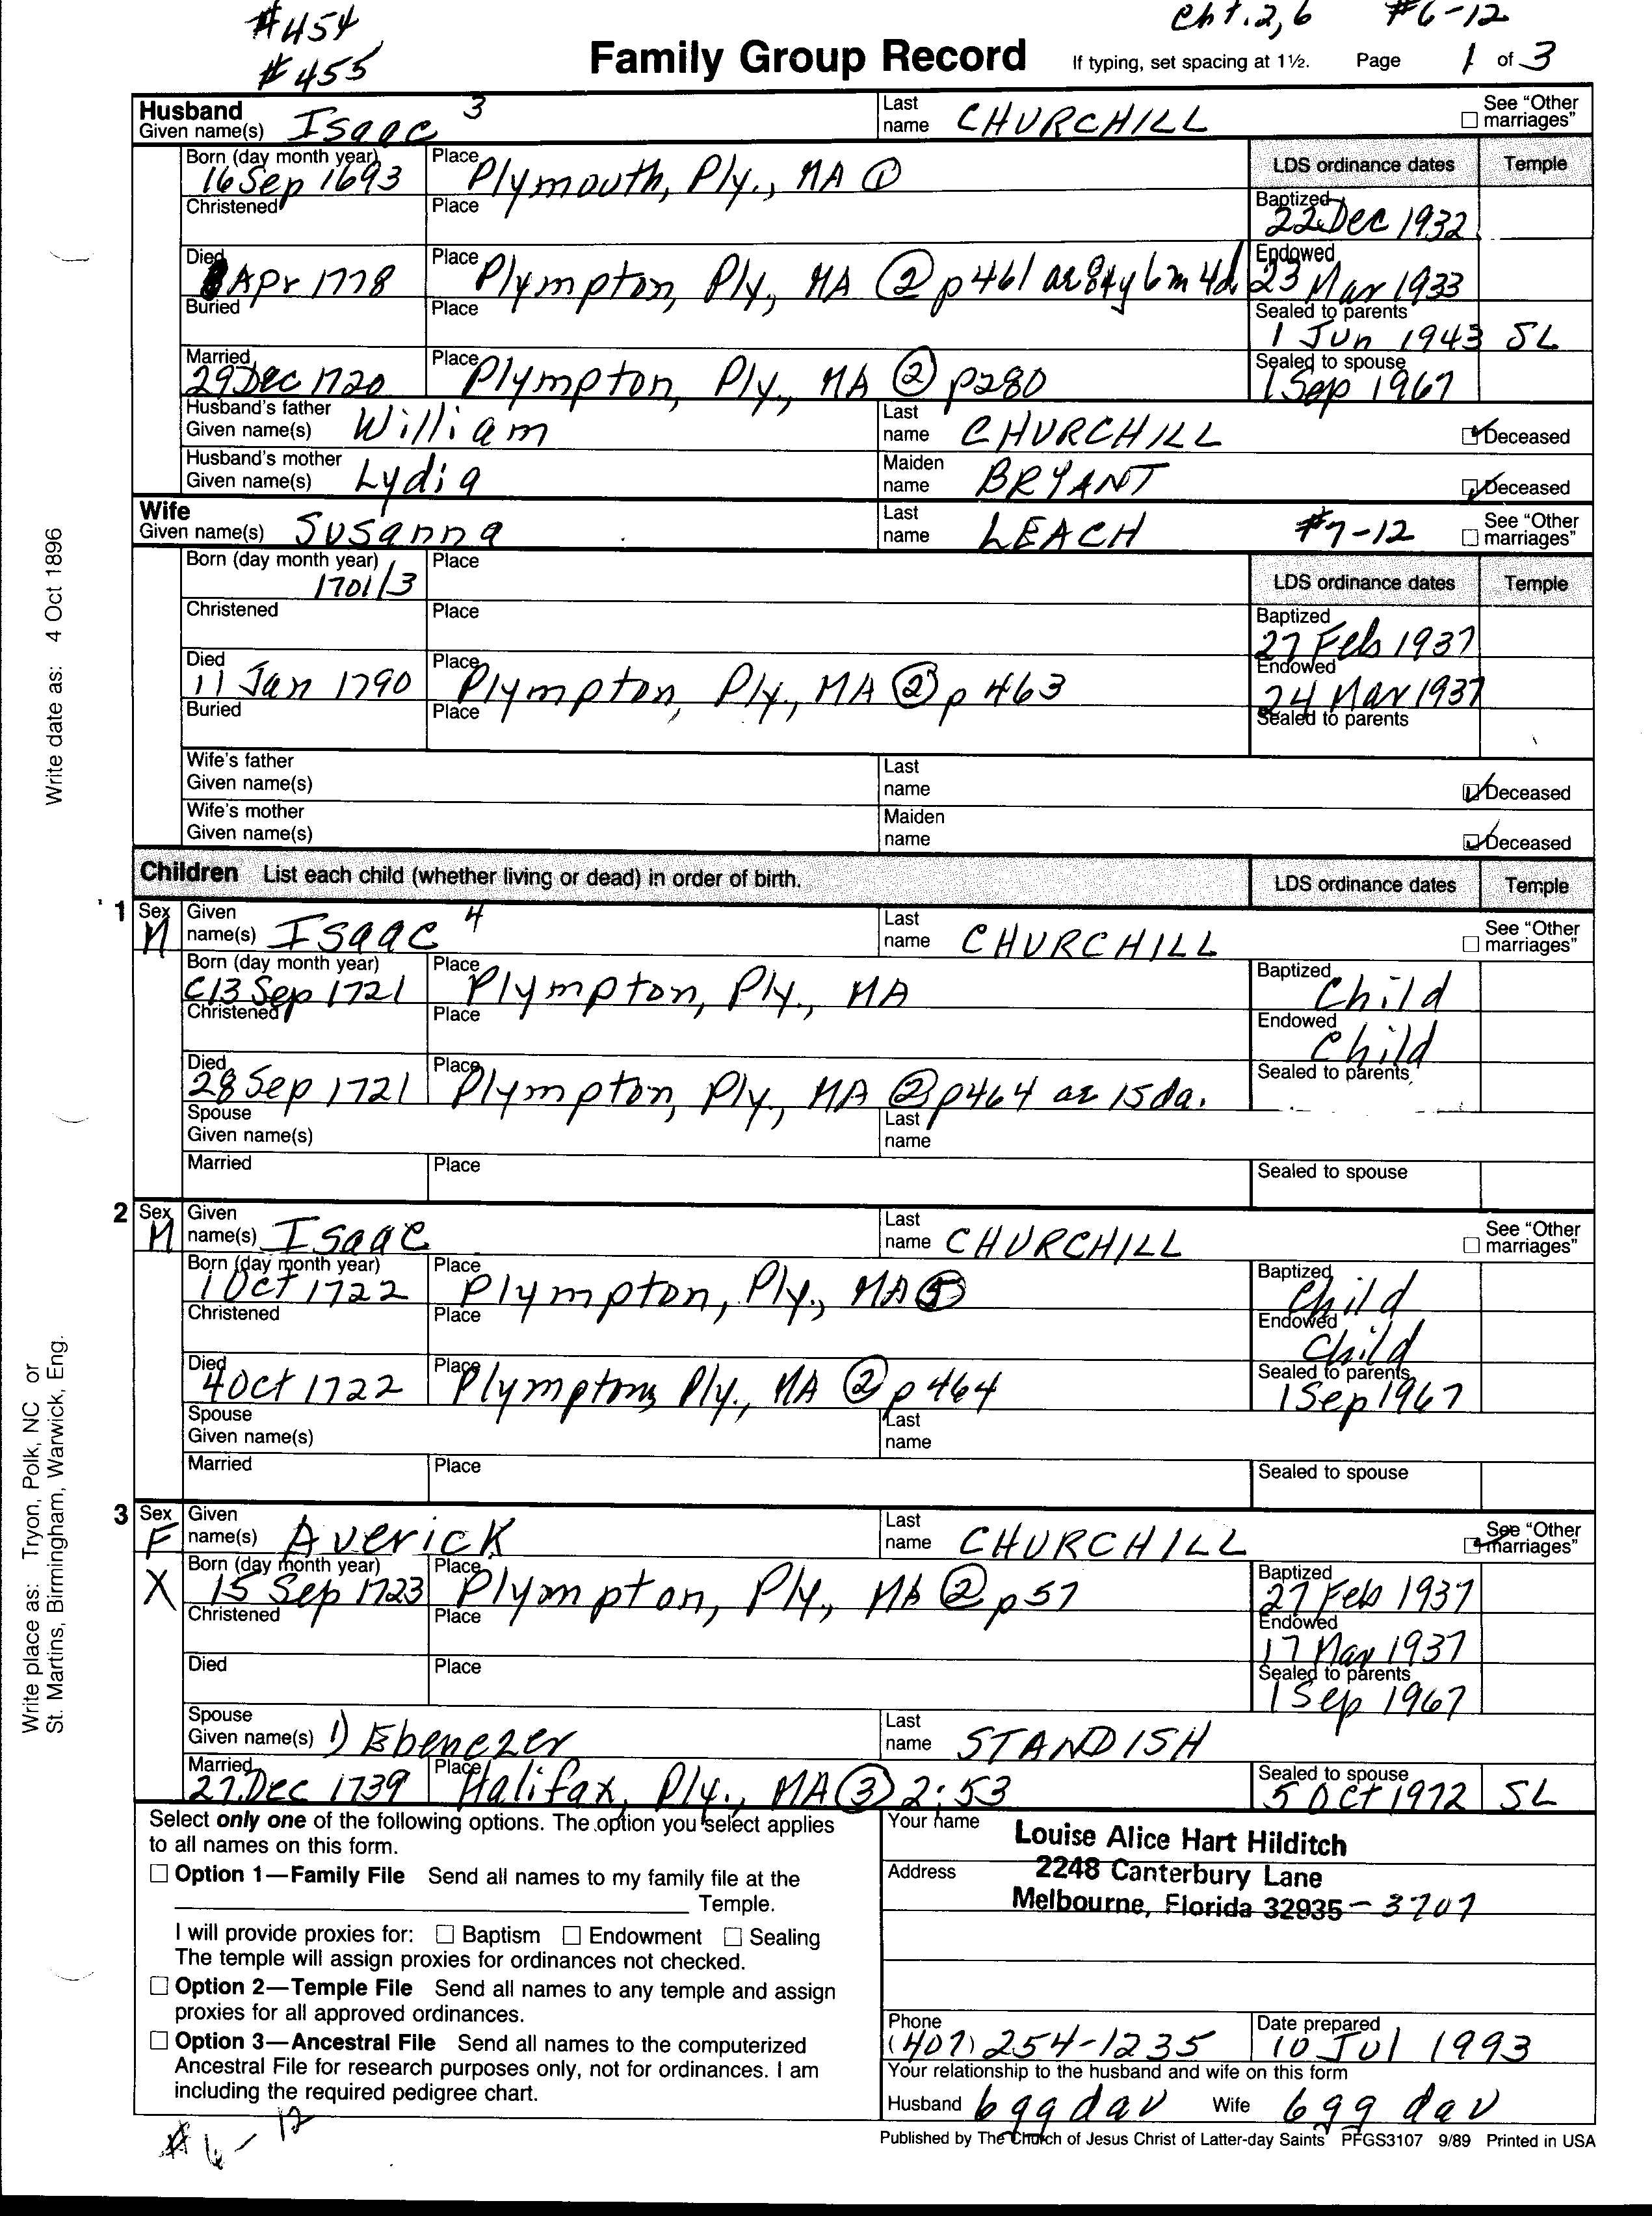 #454 Cht. 2, 6 #6-12
#455 Family Group Record If typing, set spacing at 1½. Page 1 of 3
Husband
Given name(s) Isaac 3 Last name CHURCHILL ☐ See "Other marriages"
Born (day month year) 16 Sep 1693 Place Plymouth, Ply., MA ① LDS ordinance dates Temple
Christened Place Baptized 22 Dec 1932
Died Apr 1778 Place Plympton, Ply., MA ② p461 ae 84y 6m 4d. Endowed 23 Mar 1933
Buried Place Sealed to parents 1 Jun 1943 SL
Married 29 Dec 1720 Place Plympton, Ply., MA ② p280 Sealed to spouse 1 Sep 1967
Husband's father Given name(s) William Last name CHURCHILL ☑ Deceased
Husband's mother Given name(s) Lydia Maiden name BRYANT ☑ Deceased
Wife
Given name(s) Susanna Last name LEACH #7-12 ☐ See "Other marriages"
Born (day month year) 1701/3 Place LDS ordinance dates Temple
Christened Place Baptized 27 Feb 1937
Died 11 Jan 1790 Place Plympton, Ply., MA ② p 463 Endowed 24 Mar 1937
Buried Place Sealed to parents
Wife's father Given name(s) Last name ☑ Deceased
Wife's mother Given name(s) Maiden name ☑ Deceased
Children List each child (whether living or dead) in order of birth. LDS ordinance dates Temple
1 Sex M Given name(s) Isaac 4 Last name CHURCHILL ☐ See "Other marriages"
Born (day month year) C13 Sep 1721 Place Plympton, Ply., MA Baptized Child
Christened Place Endowed Child
Died 28 Sep 1721 Place Plympton, Ply., MA ② p464 ae 15da. Sealed to parents
Spouse Given name(s) Last name
Married Place Sealed to spouse
2 Sex M Given name(s) Isaac Last name CHURCHILL ☐ See "Other marriages"
Born (day month year) 1 Oct 1722 Place Plympton, Ply., MA Baptized Child
Christened Place Endowed Child
Died 4 Oct 1722 Place Plympton, Ply., MA ② p 464 Sealed to parents 1 Sep 1967
Spouse Given name(s) Last name
Married Place Sealed to spouse
3 Sex F Given name(s) Averick Last name CHURCHILL ☑ See "Other marriages"
X Born (day month year) 15 Sep 1723 Place Plympton, Ply., MA ② p57 Baptized 27 Feb 1937
Christened Place Endowed 17 Mar 1937
Died Place Sealed to parents 1 Sep 1967
Spouse Given name(s) 1) Ebenezer Last name STANDISH
Married 27 Dec 1739 Place Halifax, Ply., MA ③ 2:53 Sealed to spouse 5 Oct 1972 SL
Select only one of the following options. The option you select applies
to all names on this form.
☐ Option 1—Family File Send all names to my family file at the
Temple.
I will provide proxies for: ☐ Baptism ☐ Endowment ☐ Sealing
The temple will assign proxies for ordinances not checked.
☐ Option 2—Temple File Send all names to any temple and assign
proxies for all approved ordinances.
☐ Option 3—Ancestral File Send all names to the computerized
Ancestral File for research purposes only, not for ordinances. I am
including the required pedigree chart.
#6-12
Your name Louise Alice Hart Hilditch
Address 2248 Canterbury Lane
Melbourne, Florida 32935-3707
Phone (407) 254-1235 Date prepared 10 Jul 1993
Your relationship to the husband and wife on this form
Husband 6 gg dau Wife 6 gg dau
Published by The Church of Jesus Christ of Latter-day Saints PFGS3107 9/89 Printed in USA
Write date as: 4 Oct 1896
Write place as: Tryon, Polk, NC or
St. Martins, Birmingham, Warwick, Eng.